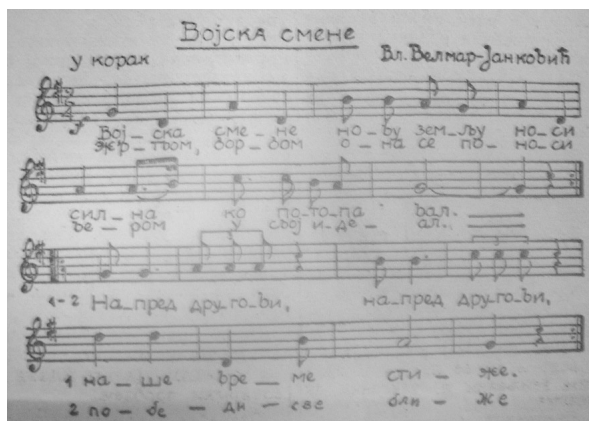 Војска смене
у корак
Вл. Велмар-Јанковић
Вој_ска сме_не но_ву зем_љу но_си
жр_твом, бор_бом о_на се по_но_си
сил_на ко по-то-па вал.
ве_ром у свој и-де_ал.
1-2 На_пред дру_го_ви, на_пред дру_го_ви,
1 на_ше вре_ме сти_же.
2 по_бе_ди_све бли_же